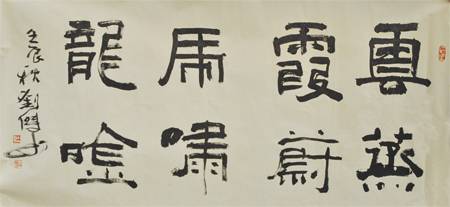 雲蒸
霞蔚
虎嘯
龍唫
壬辰秋劉傑